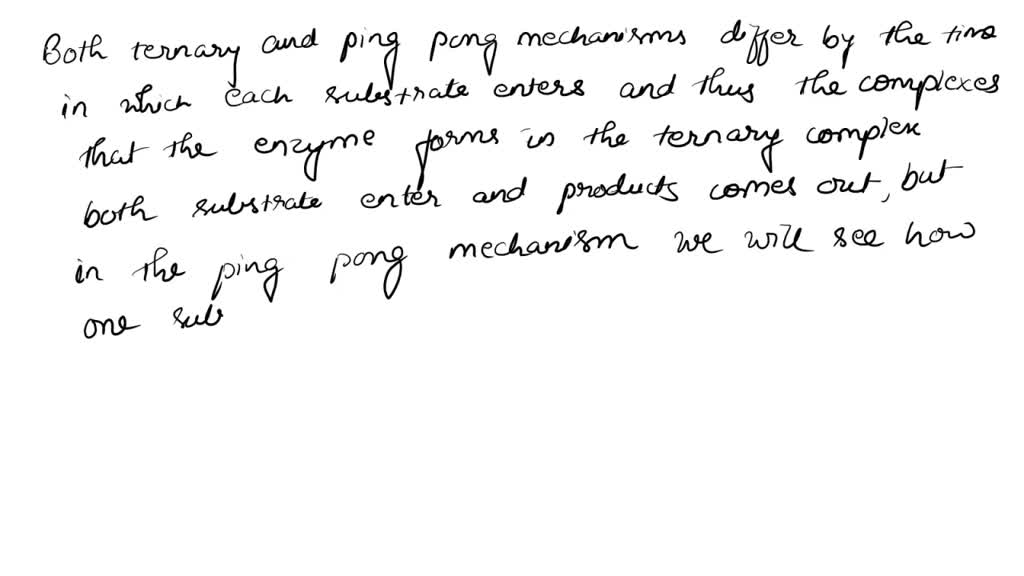 Both ternary and ping pong mechanisms differ by the time
in which each substrate enters and thus the complexes
that the enzyme forms in the ternary complex
both substrate enter and products comes out, but
in the ping pong mechanism we will see how
one sub